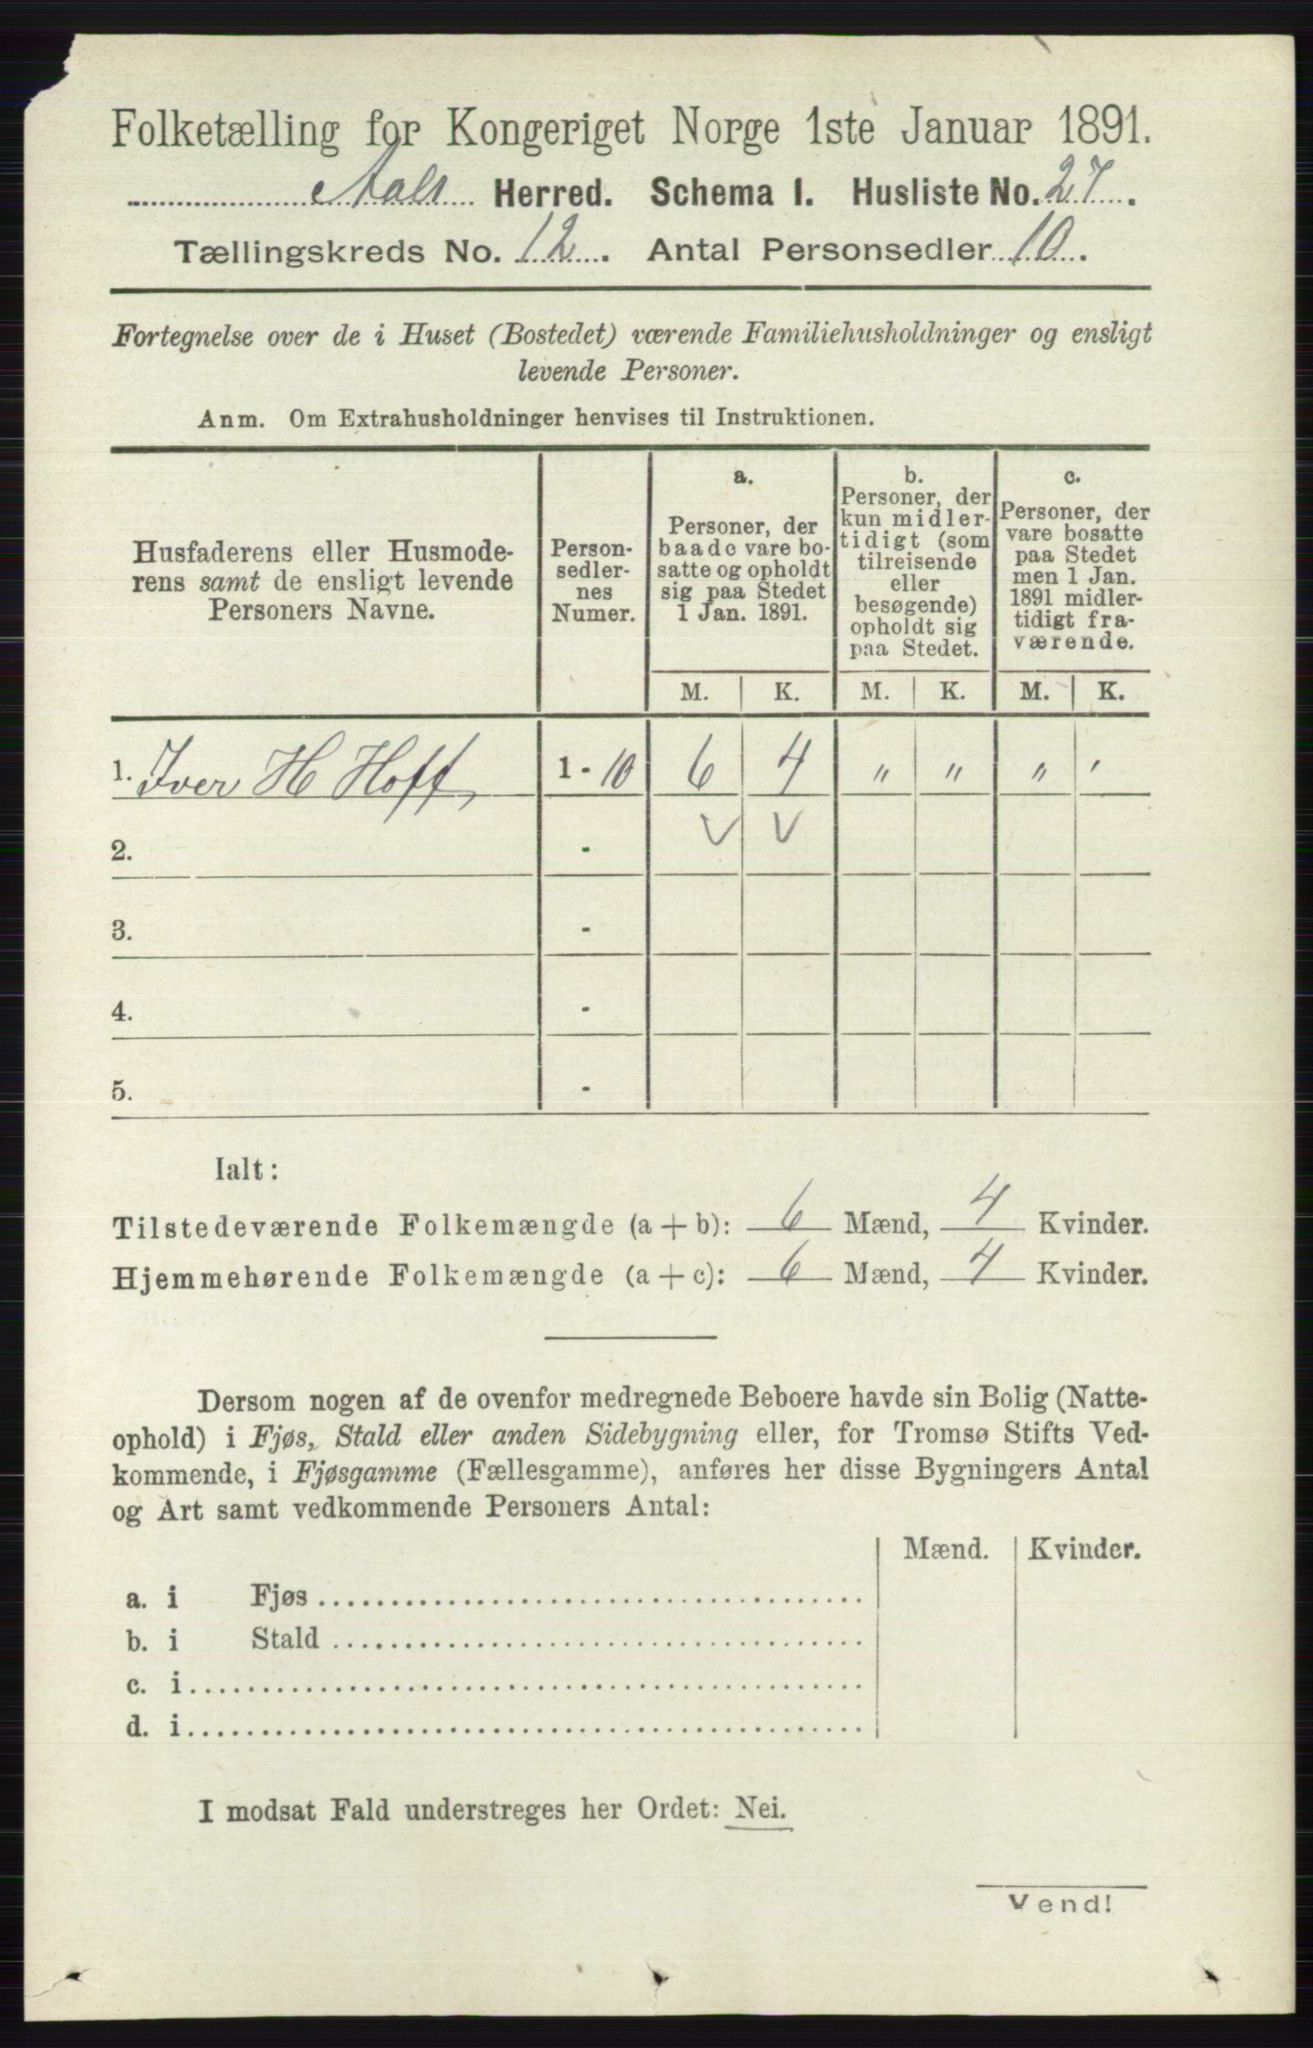 Folketælling for Kongeriget Norge 1ste Januar 1891.
Aals Herred. Schema I. Husliste No. 27.
Tællingskreds No. 12. Antal Personsedler 10.
Fortegnelse over de i Huset (Bostedet) værende Familiehusholdninger og ensligt
levende Personer.
Anm. Om Extrahusholdninger henvises til Instruktionen.
Husfaderens eller Husmode-
rens samt de ensligt levende
Personers Navne.
Person-
sedler-
nes
Numer.
a.
Personer, der
baade vare bo-
satte og opholdt
sig paa Stedet
1 Jan. 1891.
b.
Personer, der
kun midler-
tidigt (som
tilreisende
eller
besøgende)
opholdt sig
paa Stedet.
c.
Personer, der
vare bosatte
paa Stedet
men 1 Jan.
1891 midler-
tidigt fra-
værende.
M. K. M. K. M. K.
1. Iver H Hoff, 1 - 10 6 4 " " " '
2. - V V
3. -
4. -
5. -
Ialt:
Tilstedeværende Folkemængde (a + b): 6 Mænd, 4 Kvinder.
Hjemmehørende Folkemængde (a + c): 6 Mænd, 4 Kvinder.
Dersom nogen af de ovenfor medregnede Beboere havde sin Bolig (Natte-
ophold) i Fjøs, Stald eller anden Sidebygning eller, for Tromsø Stifts Ved-
kommende, i Fjøsgamme (Fællesgamme), anføres her disse Bygningers Antal
og Art samt vedkommende Personers Antal:
Mænd. Kvinder.
a. i Fjøs
b. i Stald
c. i
d. i
I modsat Fald understreges her Ordet: Nei.
Vend!